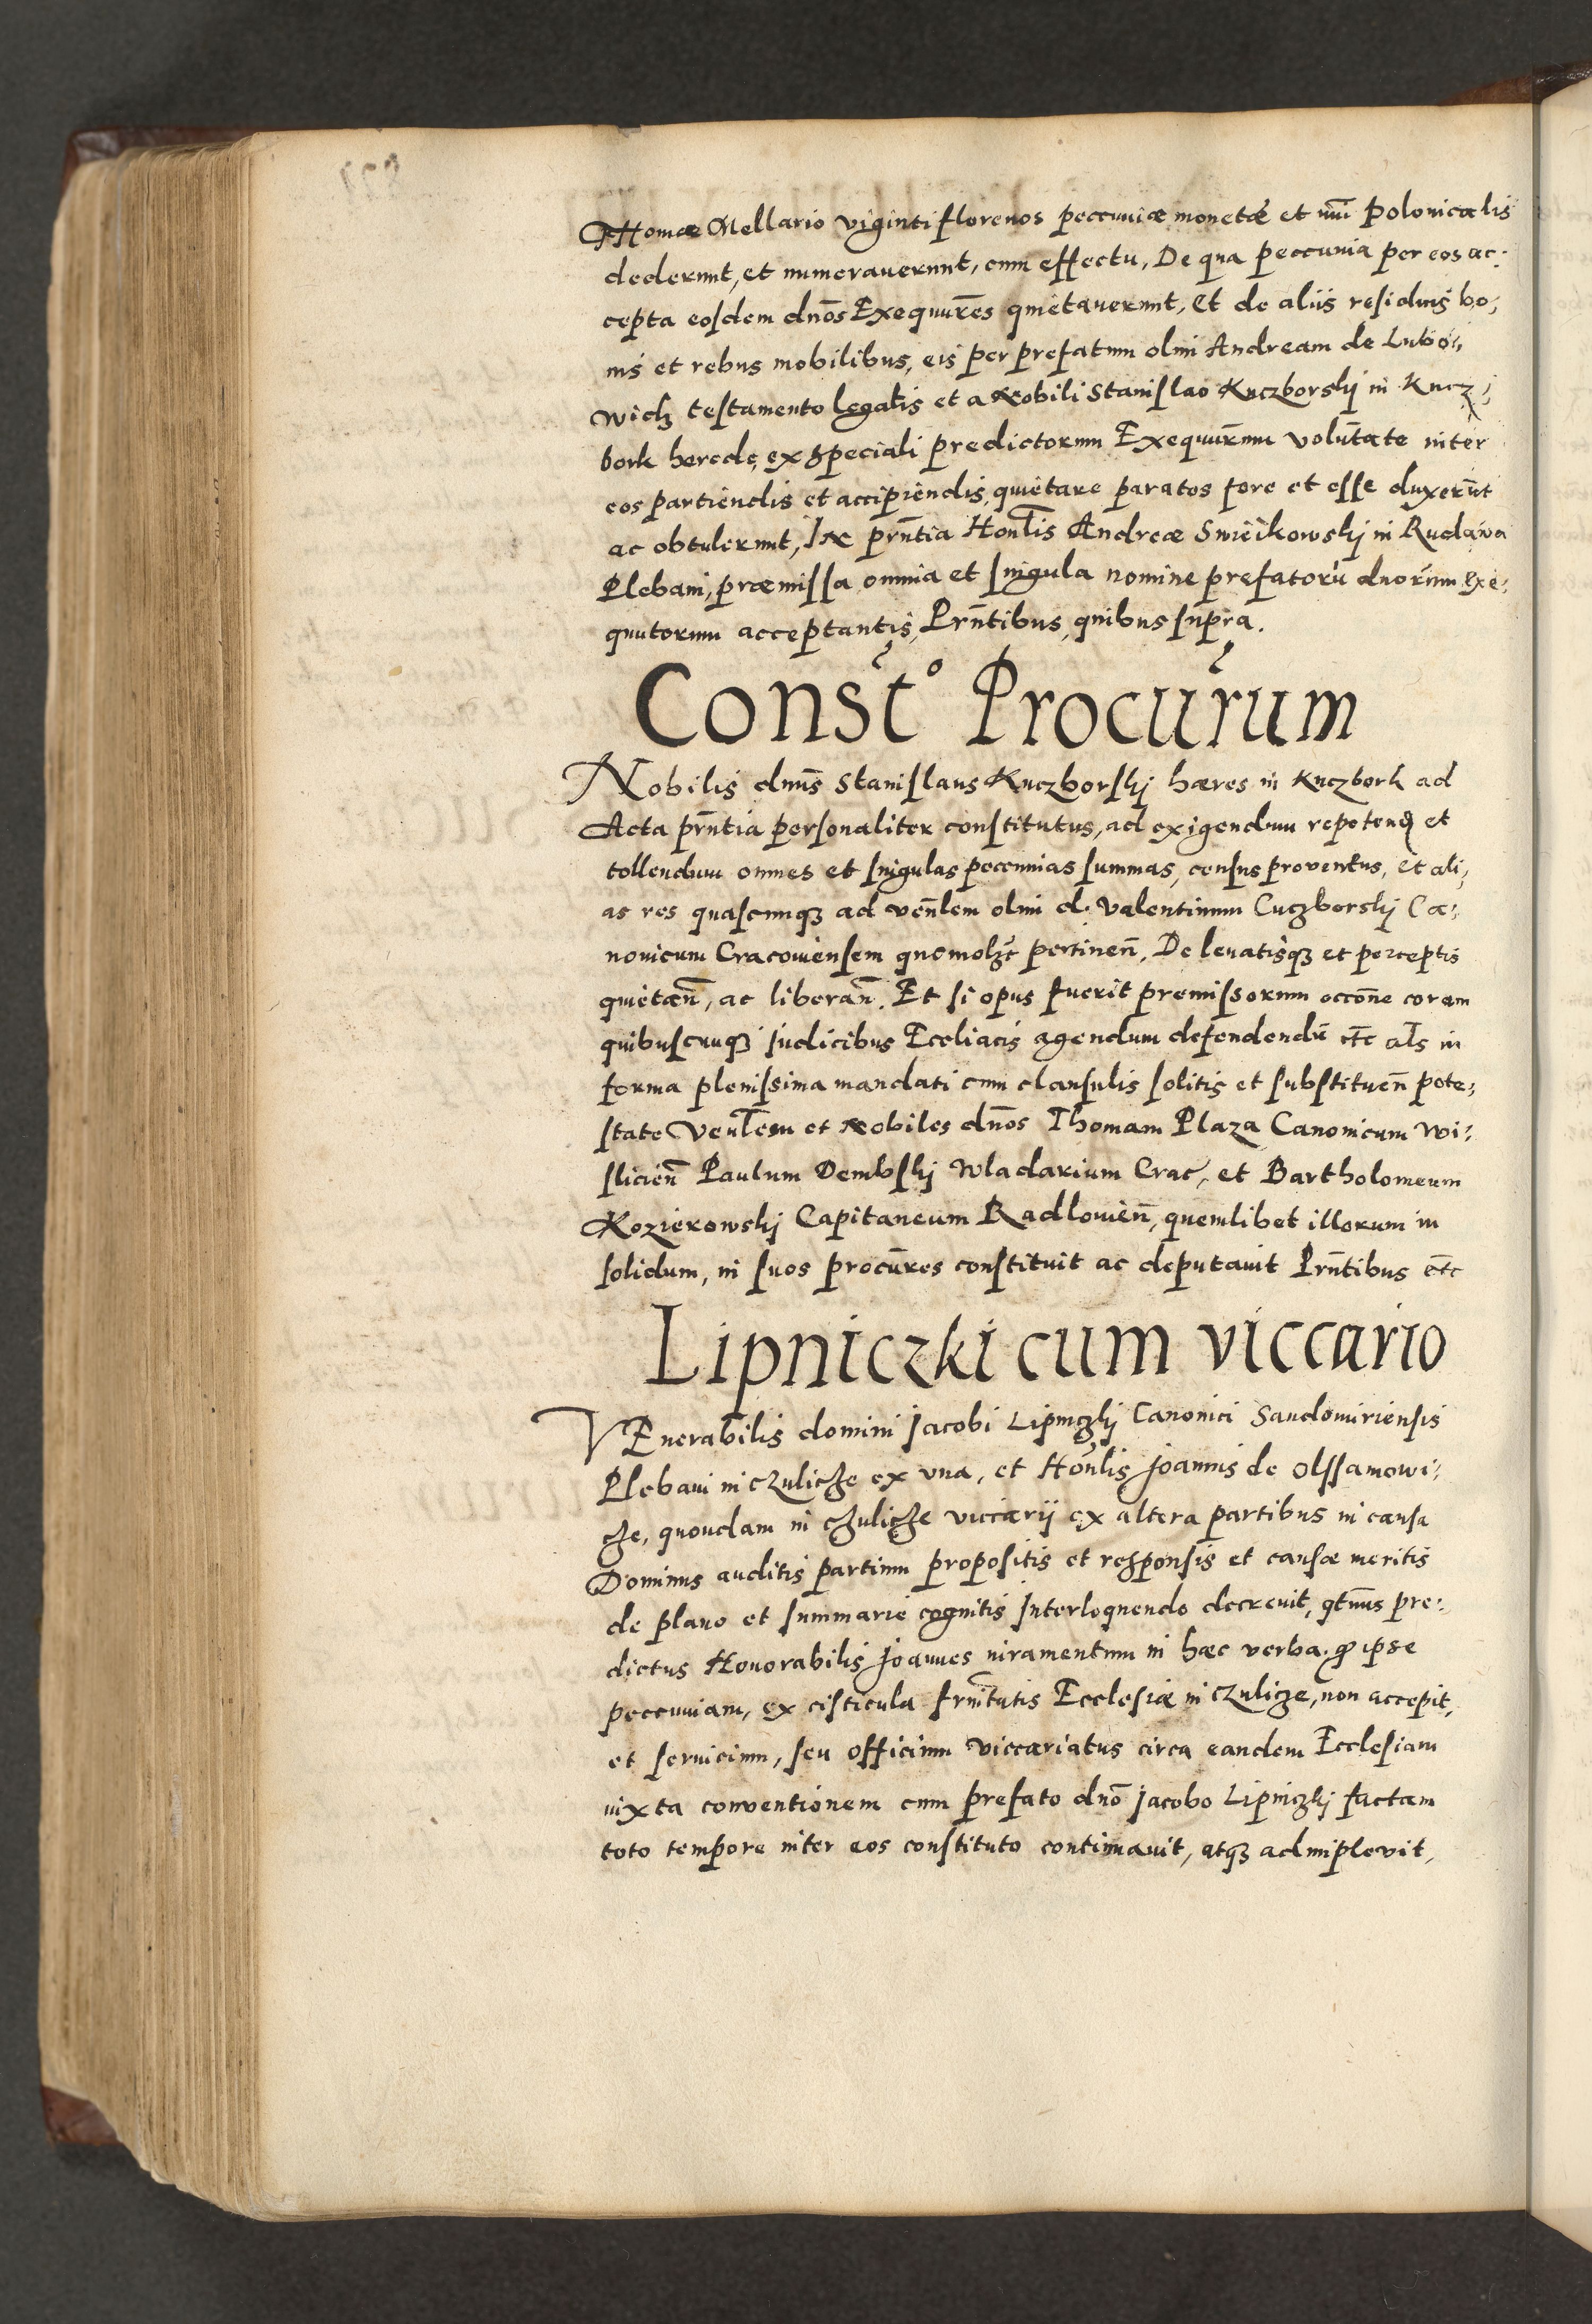 THomæ Mellario viginti florenos peccuniæ monetæ et nũi polonicalis
dederunt, et numeraverunt, cum effectu, De qua peccunia per eos ac:
cepta eosdem dños Exequũres quietaverunt, Et de aliis residuis bo,
nis et rebus mobilibus, eis per prefatum olim Andream de Lubo:,
wicz testamento legatis et a Nobili Stanislao Kuczborskj in Kucz,
bork herede, ex speciali predictorum Exequũrum voluntate inter
eos partiendis et accipiendis, quietare paratos fore et esse duxerũt
ac obtulerunt, In prñtia Honłlis Andreæ Smieikowskj in Rudawa
Plebani, præmissa omnia et singula nomine prefatorũ dnorum Exe:
quutorum acceptantis, Prñtibus, quibus supra.
Const̃º Procur̃um
Nobilis dnus̃ Stanislaus Kuczborskj hæres in Kuczbork ad
Acta prñtia personaliter constitutus, ad exigendum repetend et
tollendum omnes et singulas peccunias summas, census proventus, et ali,
as res quascunqꝫ ad veñlem olim d. Valentinum Cuczborskj Ca:,
nonicum Cracouiensem quomolꝫt pertineñ, De levatisqꝫ et perceptis
quietañ, ac liberañ. Et si opus fuerit premissorum occoñe coram
quibuscunqꝫ judicibus Eccliacis agendum defendendũ etc̃ als̃ in
forma plenissima mandati cum clausulis solitis et substitueñ pote,
state Venłlem et Nobiles dños Thomam Plaza Canonicum Wi:
slicieñ Paulum Dembskj Wladarium Crac, et Bartholomeum
Kozierowskj Capitaneum Radlouieñ, quemlibet illorum in
solidum, in suos procũres constituit ac deputauit Prñtibus etc̃
Lipniczki cum viccario
VEnerabilis domini Jacobi Lipniczkj Canonici Sandomiriensis
Plebani in Czulicze ex vna, et Honłlis Joannis de Olssamowi:
cze, quondam in Czulicze viccarij ex altera partibus in causa
Dominus auditis partium propositis et responsis et causæ meritis
de plano et summarie cognitis Interloquendo decreuit, qtñus pre:
dictus Honorabilis Joannes iuramentum in hæc verba. ꝙ ipse
peccuniam, ex cisticula frñitatis Ecclesiæ in Czulicze, non accepit,
et seruicium, seu officium viccariatus circa eandem Ecclesiam
iuxta conventionem cum prefato dño Jacobo Lipniczkj factam
toto tempore inter eos constituto continuauit, atqꝫ adimplevit,